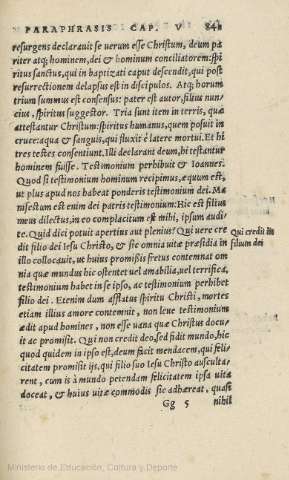 PARAPHRASIS CAP. V 841
resurgens declarauit se uerum esse Christum, deum pa
riter atq; hominem, dei & hominum conciliatorem: spi
ritus sanctus, qui in baptizati caput descendit, qui post
resurrectionem delapsus est in discipulos. Atq; horum
trium summus est consensus: pater est autor, filius nun=
cius, spiritus suggestor. Tria sunt item in terris, quæ
attestantur Christum: spiritus humanus, quem posuit in
cruce: aqua & sanguis, qui fluxit è latere mortui. Et hi
tres testes consentiunt. Illi declarant deum, hi testantur
hominem fuisse. Testimonium perhibuit & Ioannes.
Quod si testimonium hominum recipimus, æquum est,
ut plus apud nos habeat ponderis testimonium dei. Ma
nifestum est enim dei patris testimonium: Hic est filius
meus dilectus, in eo complacitum est mihi, ipsum audi=
te. Quid dici potuit apertius aut plenius? Qui uere cre
dit filio dei Iesu Christo, & sic omnia uitæ præsidia in
illo collocauit, ut huius promissis fretus contemnat om
nia quæ mundus hic ostentet uel amabilia, uel terrifica,
testimonium habet in se ipso, ac testimonium perhibet
filio dei. Etenim dum afflatus spiritu Christi, mortes
etiam illius amore contemnit, non leue testimonium
ædit apud homines, non esse uana quæ Christus docu=
it ac promisit. Qui non credit deo, sed fidit mundo, hic
quod quidem in ipso est, deum facit mendacem, qui feli=
citatem promisit ijs, qui filio suo Iesu Christo ausculta=
rent, cum is à mundo petendam felicitatem ipsa uita
doceat, & huius uitæ commodis sic adhæreat, quasi
Gg 5 nihil
Qui credit in
filium dei
Ministerio de Educación, Cultura y Deporte